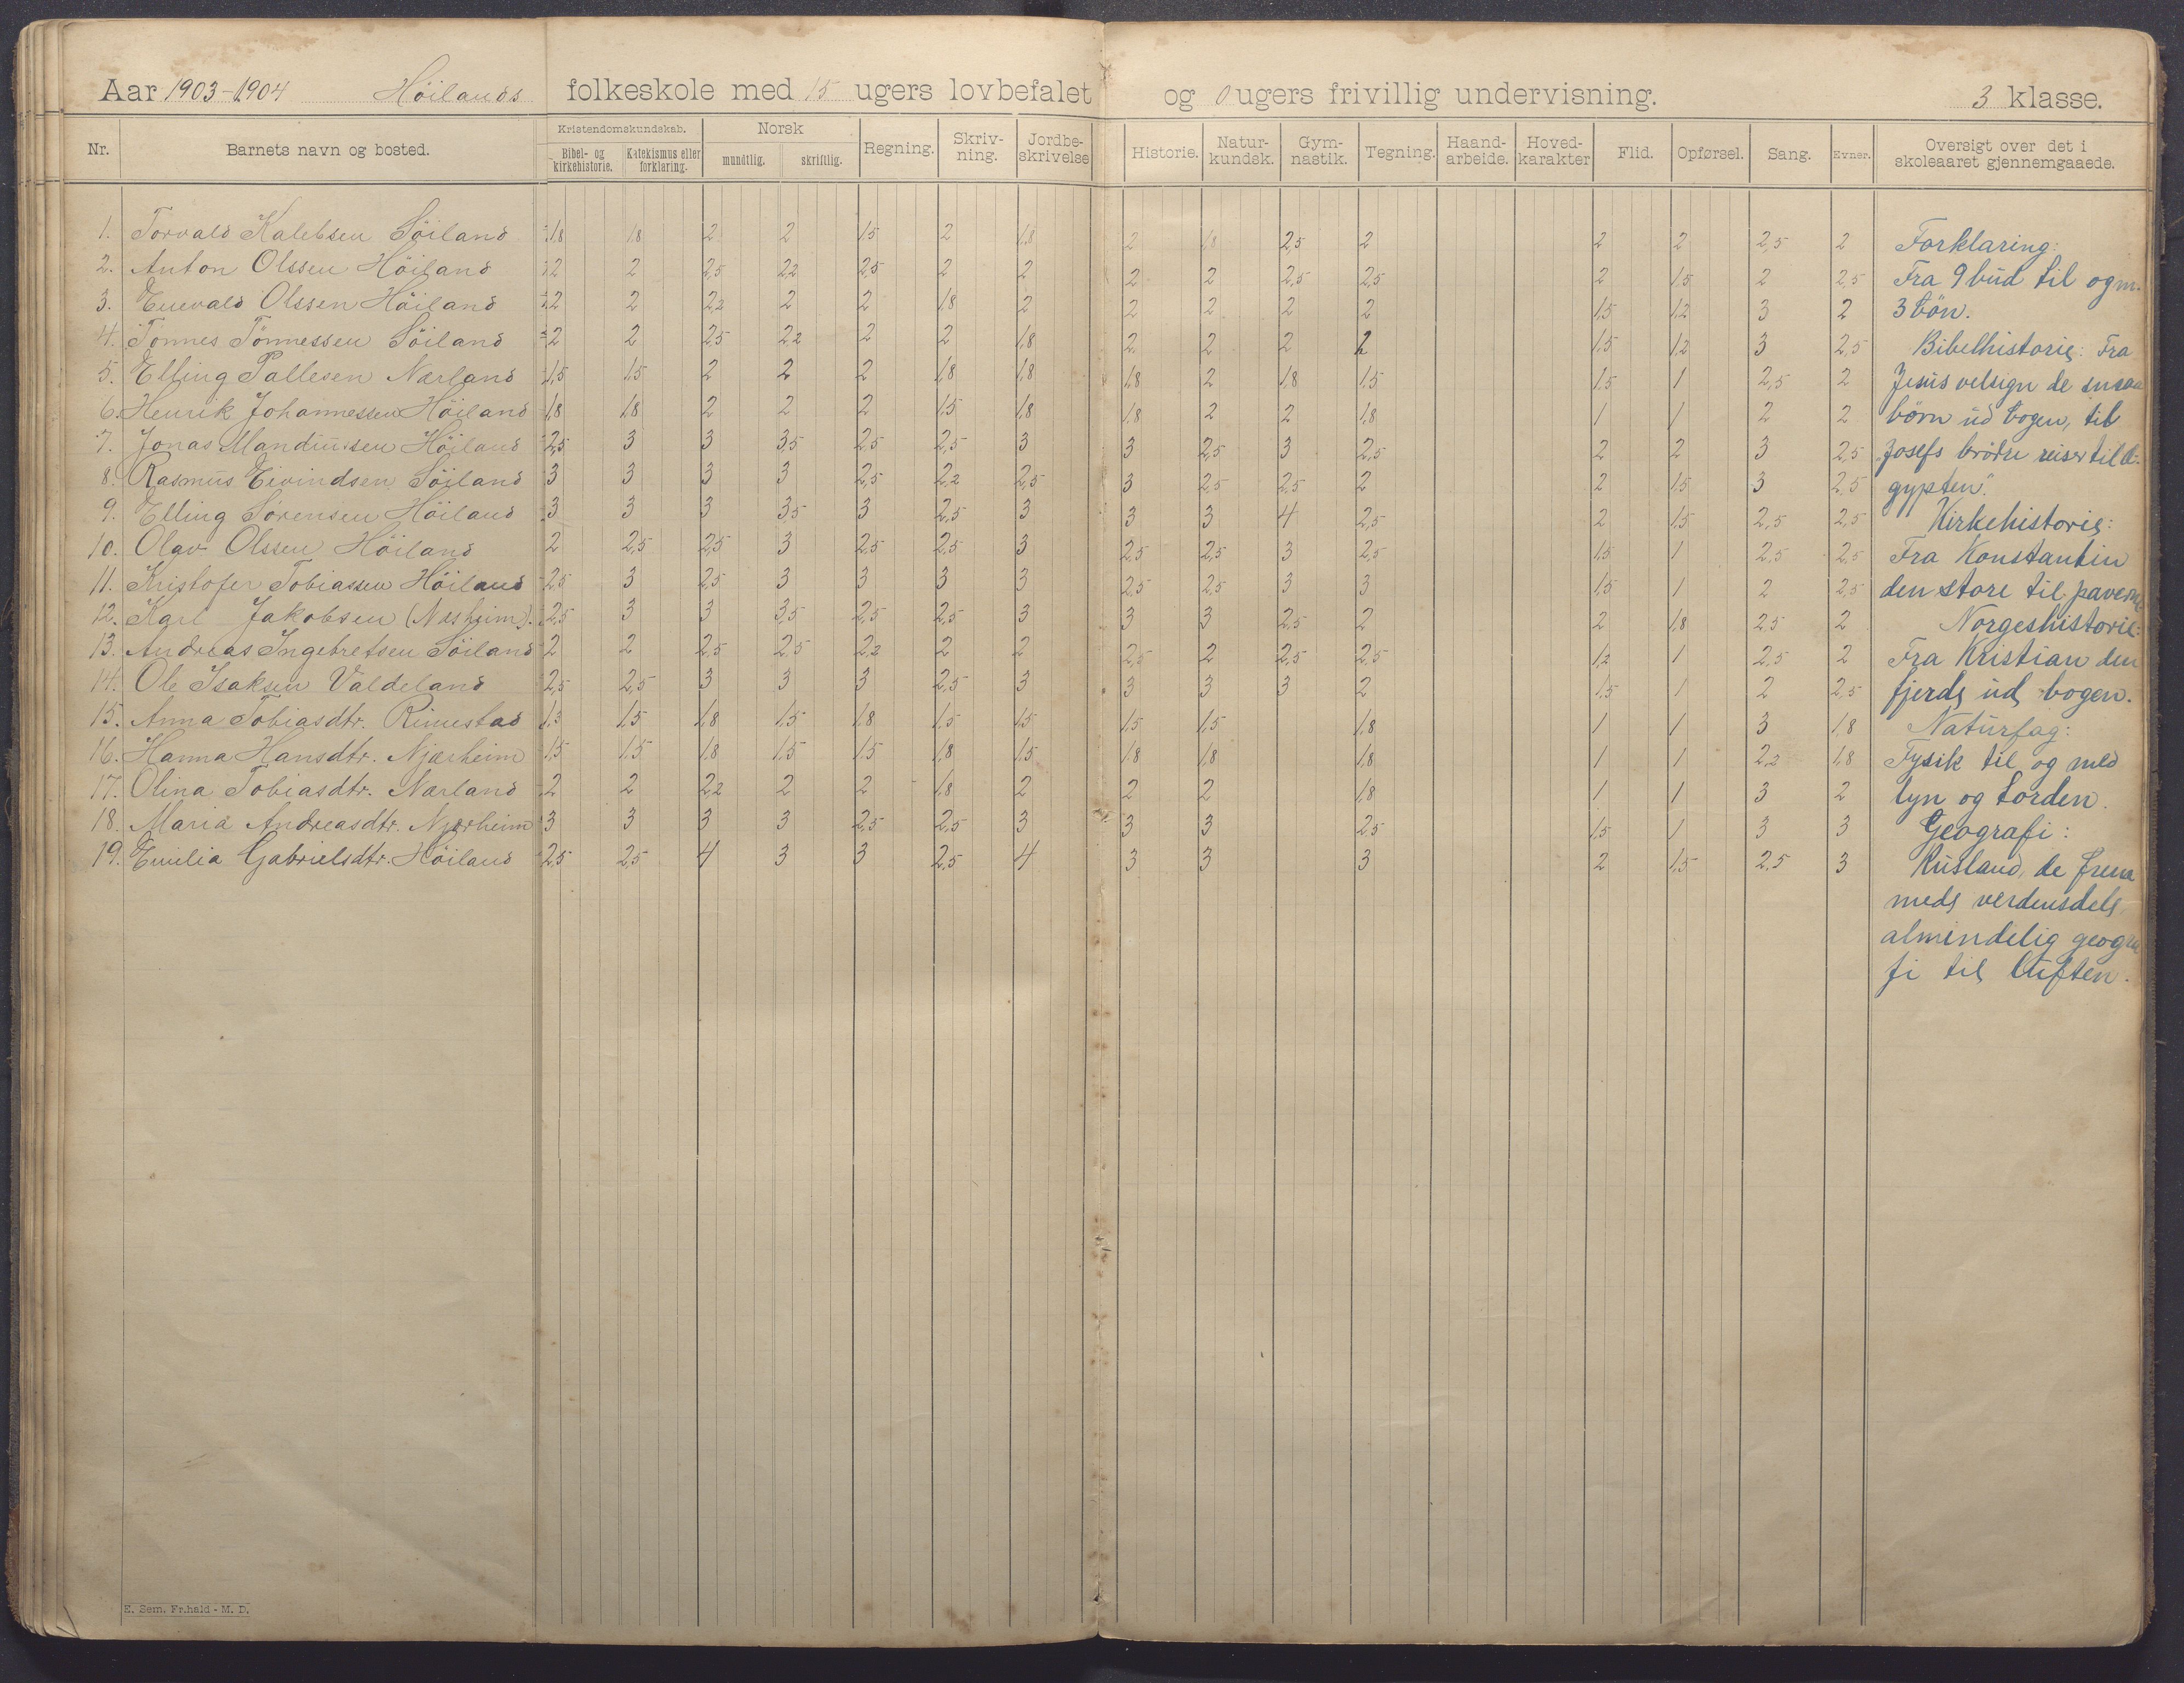 Aar 1903-1904 Höilands folkeskole med 15 ugers lovbefalet og 0 ugers frivillig undervisning. 3 klasse.
Nr. Barnets navn og bosted. Kristendomskundskab. Bibel- og kirkehistorie. Katekismus eller forklaring. Norsk mundtlig. skriftlig. Regning. Skriv-ning. Jordbe-skrivelse Historie. Natur-kundsk. Gym-nastik. Tegning. Haand-arbeide. Hoved-karakter Flid. Opførsel. Sang. Evner. Oversigt over det i skoleaaret gjennemgaaede.
1. Torvald Kalebsen Söiland 1,8 1,8 2 2 1,5 2 1,8 2 1,8 2,5 2 2 2 2,5 2
2. Anton Olssen Höiland 2 2 2,5 2,2 2,5 2 2 2 2 2,5 2,5 2 1,5 2 2,5
3. Enevald Olssen Höiland 2 2 2,2 2 2 1,8 2 2 2 2 2 1,5 1,2 3 2
4. Tönnes Tönnessen Söiland 2 2 2,5 2,2 2 2 1,8 2 2 2 2 1,5 1,2 3 2,5
5. Elling Pallesen Nærland 1,5 1,5 2 2 2 1,8 1,8 1,8 2 1,8 1,5 1,5 1 2,5 2
6. Henrik Johannessen Höiland 1,8 1,8 2 2 2 1,5 1,8 1,8 2 2 1,8 1 1 2 2
7. Jonas Mandiussen Höiland 2,5 3 3 3,5 2,5 2,5 3 3 2,5 3 2,5 2 2 3 2,5
8. Rasmus Eivindsen Söiland 3 3 3 3 2,5 2,2 2,5 3 2,5 2,5 2 2 1,5 3 2,5
9. Elling Sörensen Höiland 3 3 3 3,5 3 2,5 3 3 3 4 2,5 2 1,5 2,5 2,5
10. Olav Olssen Höiland 2 2,5 2,5 3 2,5 2,5 3 2,5 2,5 3 2,5 1,5 1 2,5 2,5
11. Kristofer Tobiassen Höiland 2,5 3 2,5 3 3 3 3 2,5 2,5 3 3 1,5 1 2 2,5
12. Karl Jakobsen (Næsheim). 2,5 3 3 3,5 2,5 2,5 3 3 3 2,5 2 2 1,8 2,5 2
13. Andreas Ingebretsen Söiland 2 2 2,5 2,5 2,2 2 2 2,5 2 2,5 2,5 1,2 1 2,5 2
14. Ole Isaksen Valdeland 2,5 2,5 3 3 3 2,5 3 3 3 3 2 1,5 1 2 2,5
15. Anna Tobiasdtr. Rimestad 1,3 1,5 1,8 1,5 1,8 1,5 1,5 1,5 1,5 1,8 1 1 3 1,8
16. Hanna Hansdtr. Njærheim 1,5 1,5 1,8 1,5 1,5 1,8 1,5 1,8 1,8 1,8 1 1 2,2 1,8
17. Olina Tobiasdtr. Nærland 2 2 2,2 2 2 1,8 2 2 2 1,8 1 1 3 2
18. Maria Andreasdtr. Njærheim 3 3 3 3 2,5 2,5 3 3 3 2,5 1,5 1 3 3
19. Emilia Gabrielsdtr. Höiland 2,5 2,5 4 3 3 2,5 4 3 3 3 2 1,5 2,5 3
Forklaring:
Fra 9 bud til og m.
3 bön.
Bibelhistorie: Fra
Jesus velsign de smaa
börn ud bogen, til
"Josefs brödre reiser til Æ-
gypten".
Kirkehistorie:
Fra Konstantin
den store til paverne
Norgeshistorie:
Fra Kristian den
fjerde ud bogen.
Naturfag:
Fysik til og med
lyn og torden.
Geografi:
Rusland, de frem
mede verdensdele
almindelig geogra
fi til luften.
E. Sem. Fr.hald - M. D.